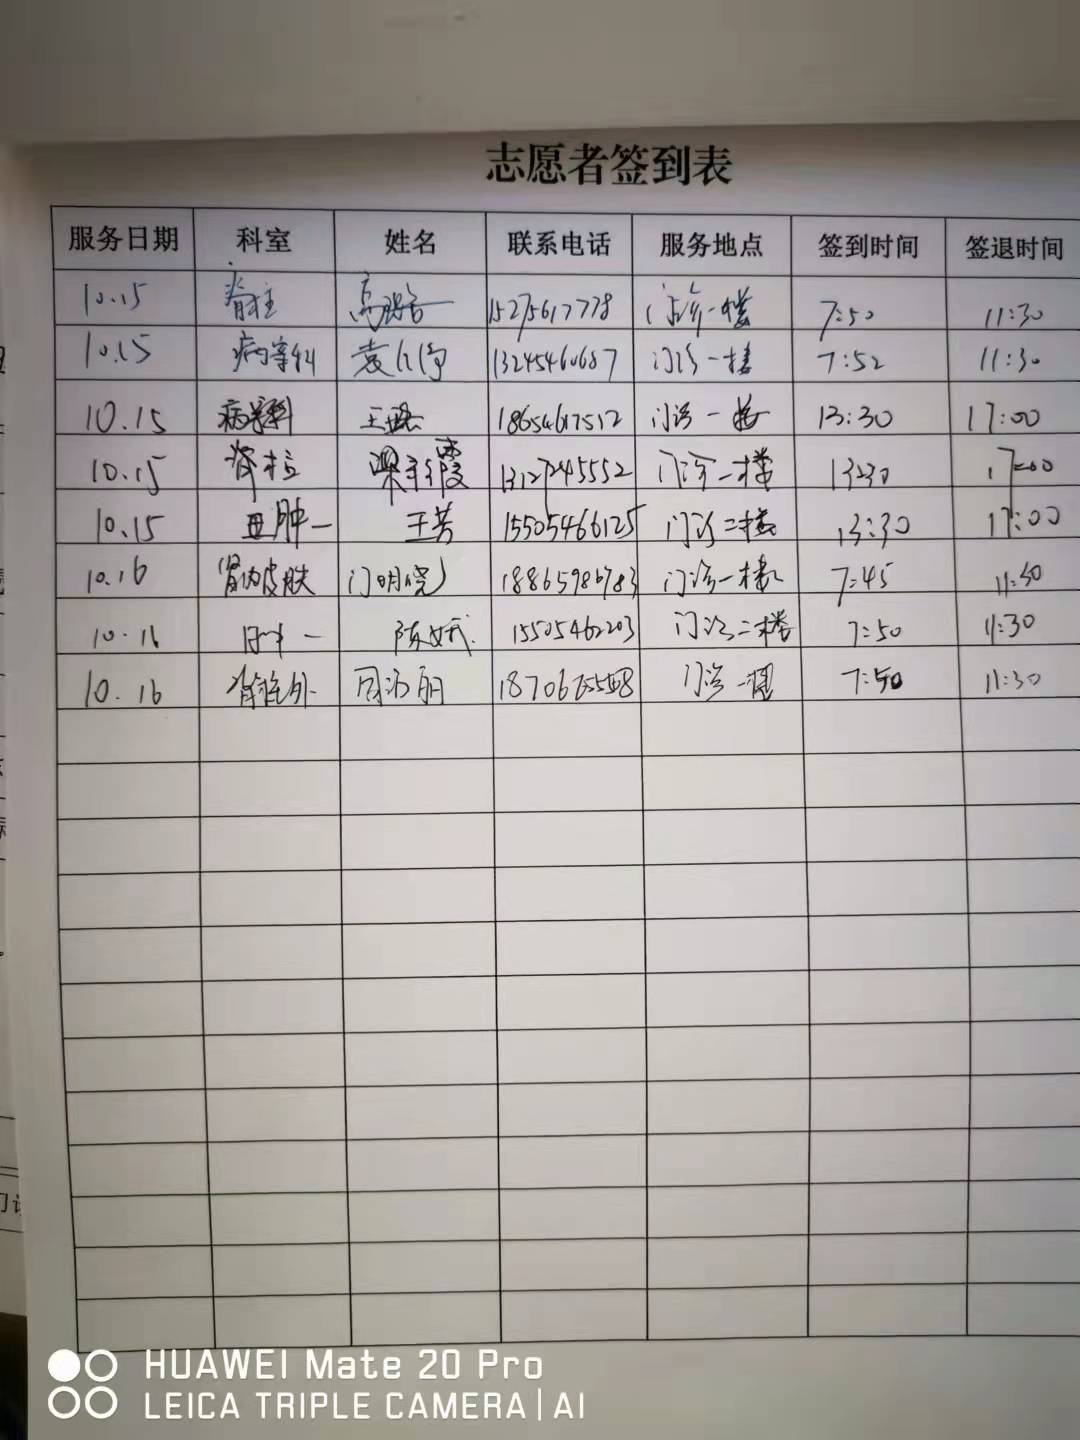 志愿者签到表
服务日期 科室 姓名 联系电话 服务地点 签到时间 签退时间
10.15 脊柱 高 15275617778 门诊一楼 7:50 11:30
10.15 病案科 袁 13245460687 门诊一楼 7:52 11:30
10.15 病案科 王 18654617512 门诊一楼 13:30 17:00
10.15 脊柱 梁 霞 13127245552 门诊一楼 13:30 17:00
10.15 王芳 15505466125 门诊二楼 13:30 17:00
10.16 肾内皮肤 门明晓 18865986783 门诊一楼 7:45 11:30
10.16 陈 15505462203 门诊二楼 7:50 11:30
10.16 脊椎外 周 丽 门诊一楼 7:50 11:30
HUAWEI Mate 20 Pro
LEICA TRIPLE CAMERA | AI